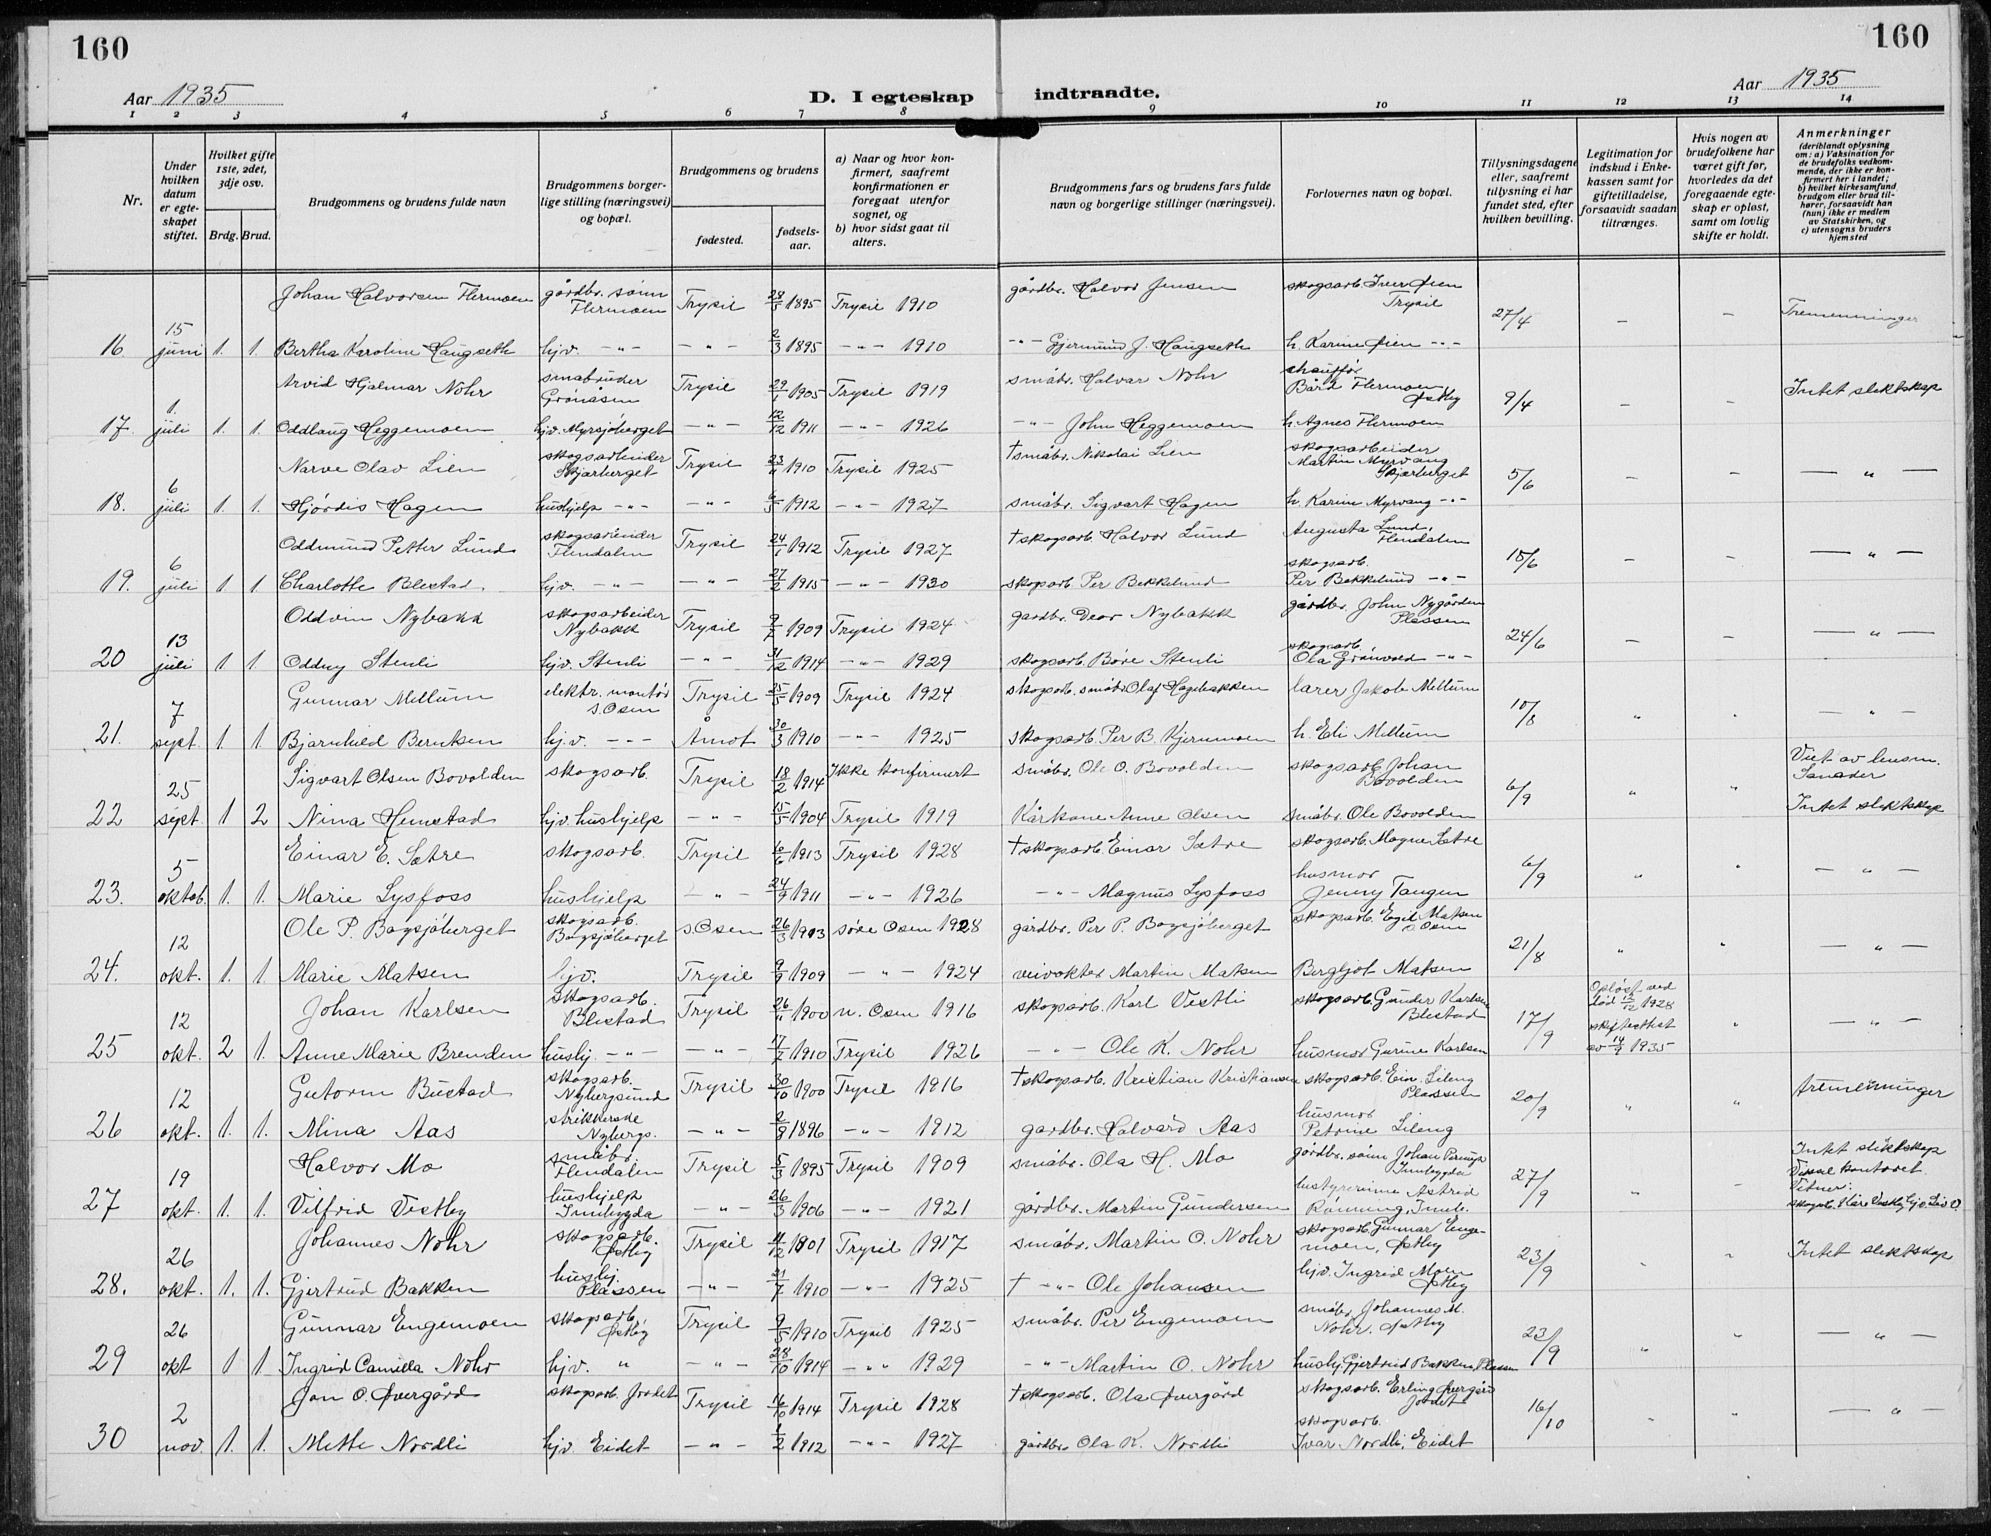 160
160
Aar 1935
D. I egteskap indtraadte.
Aar 1935
1 2 3 4 5 6 7 8 9 10 11 12 13 14
Nr.
Under hvilken datum er egteskapet stiftet.
Hvilket gifte 1ste, 2det, 3dje osv.
Brdg. Brud.
Brudgommens og brudens fulde navn
Brudgommens borgerlige stilling (næringsvei) og bopæl.
Brudgommens og brudens
fødested.
fødselsaar.
a) Naar og hvor konfirmert, saafremt konfirmationen er foregaat utenfor sognet, og
b) hvor sidst gaat til alters.
Brudgommens fars og brudens fars fulde navn og borgerlige stillinger (næringsvei).
Forlovernes navn og bopæl.
Tillysningsdagene eller, saafremt tillysning ei har fundet sted, efter hvilken bevilling.
Legitimation for indskud i Enkekassen samt for giftetilladelse, forsaavidt saadan tiltrænges.
Hvis nogen av brudefolkene har været gift før, hvorledes da det foregaaende egteskap er opløst, samt om lovlig skifte er holdt.
Anmerkninger (deriblandt oplysning om: a) Vaksination for de brudefolks vedkommende, der ikke er konfirmert her i landet; b) hvilket kirkesamfund brudgom eller brud tilhører, forsaavidt han (hun) ikke er medlem av Statskirken, og c) utensogns bruders hjemsted
Johan Halvorsen Flermoen gårdbr. sønn Flermoen Trysil 1895 Trysil 1910 gårdbr. Halvor Jensen skogsarb. Iver Øien Trysil 27/4 – – Tremenninger
16. 15 juni 1. 1. Bertha Karoline Haugseth hjv. -"- -"- 2/3 1895 -"- 1910 -"- Gjermund J. Haugseth h. Karine Øien -"-
Arvid Hjalmar Nohr småbruker Grønåsen Trysil 29/1 1905 Trysil 1919 småbr. Halvar Nohr chauffør Bård Flermoen Østby 9/4 – – Intet slektskap
17. 1. juli 1. 1. Oddlaug Heggemoen hjv. Myrsjøberget -"- 12/12 1911 -"- 1926 -"- John Heggemoen h. Agnes Flermoen
Narve Olav Lien skogsarbeider Skjærberget Trysil 1910 Trysil 1925 † småbr. Nikolai Lien skogsarbeider Martin Myrvang Skjærberget 5/6 – – — " —
18. 6 juli 1. 1. Hjørdis Hagen hushjelp -"- -"- 1912 -"- 1927 småbr. Sigvart Hagen h. Karin Myrvang -"-
Oddmund Petter Lund skogsarbeider Flendalen Trysil 24/1 1912 Trysil 1927 † skogsarb. Halvor Lund Augusta Lund, Flendalen 15/6 – – — " —
19. 6 juli 1 1 Charlotte Blestad hjv. -"- -"- 27/2 1915 -"- 1930 skogsarb. Per Bekkelund skogsarb. Per Bekkelund -"-
Oddvin Nybakk skogsarbeider Nybakk Trysil 9/7 1909 Trysil 1924 gardbr. Nybakk gårdbr. John Nygården Plassen 24/6 – – — " —
20 13 juli 1 1. Oddny Stenli hjv. Stenli -"- 31/12 1914 -"- 1929 skogsarb. Børe Stenli skogsarb. Ola Grønvold -"-
Gunnar Mellum elektr. montør s. Osen Trysil 25/5 1909 Trysil 1924 skogsarb. småbr. Olaf Hagebakken lærer Jakob Mellum 10/8 " " — " —
21. 7 sept. 1 1. Bjarnhild Berntsen hj.v. -"- Åmot 30/3 1910 -"- 1925 skogsarb. Per B. Kjernmoen h. Eli Mellum
Sigvart Olsen Bovolden skogsarb. Trysil 18/2 1914 Ikke konfirmert småbr. Ole O. Bovolden skogsarb. Johan Bovolden 6/9 " " Viet av lensm. Sanader
22 25 sept. 1 2 Nina Hemstad hjv. hushjelp -"- 15/5 1904 Trysil 1919 Kårkone Anne Olsen småbr. Ole Bovolden Intet slektskap
Einar E. Sætre skogsarb. Trysil 6/6 1913 Trysil 1928 † skogsarb. Einar Sætre skogsarb. Magne Sætre 6/9 " " — " —
23. 5 oktob. 1. 1. Marie Lysfoss hushjelp -"- 24/9 1911 -"- 1926 -"- Magnus Lysfoss husmor Jenny Tangen
Ole P. Bogsjøberget skogsarb. Bogsjøberget s. Osen 26/3 1913 søre Osen 1928 gårdbr. Per P. Bogsjøberget skogsarb. Egil Matsen s. Osen 21/8 " " — " —
24. 12 okt. 1. 1. Marie Matsen hjv. Trysil 9/9 1909 -"- 1924 veivokter Martin Matsen Bergljot Matsen
Johan Karlsen skogsarb. Blestad Trysil 26/11 1900 n. Osen 1916 skogsarb. Karl Vestli skogsarb. Gunder Karlsen Blestad 17/9 Opløst ved død 1928 skifteattest av 1935 " — " —
25 12 okt. 2 1. Anne Marie Brenden hushj. -"- -"- 1910 Trysil 1926 -"- Ole K. Nohr husmor Gurine Karlsen
Gutorm Bustad skogsarb. Nybergsund Trysil 30/10 1900 Trysil 1916 † skogsarb. Kristian Kristiansen skogsarb. Ein. Lileng Plassen 20/9 " " tremenninger
26 12 okt. 1. 1. Mina Aas strikkerske Nybergs. -"- 2/9 1896 -"- 1912 gardbr. Halvard Aas husmor Petrine Lileng
Halvor Mo småbr. Flendalen Trysil 5/3 1895 Trysil 1909 småbr. Ola H. Mo gårdbr. sønn Johan Innbygda 27/9 " – Intet slektskap
27 19 okt. 1. 1. Vilfrid Vestby hushjelp Innbygda -"- 26/3 1906 -"- 1921 gårdbr. Martin Gundersen bestyrerinne Astrid Rønning, Innb. kontoret. Vitner: skogarb. Kåre Vestby
Johannes Nohr skogsarb. Østby Trysil 11/12 1901 Trysil 1917 småbr. Martin O. Nohr skogsarb. Gunnar Engemoen, Østby 23/9 " " Intet slektskap
28. 26 okt. 1. 1. Gjertrud Bakken hushj. Plassen -"- 21/7 1910 -"- 1925 † -"- Ole Johansen hjv. Ingrid Moen Østby
Gunnar Engemoen skogsarb. Østby Trysil 9/5 1910 Trysil 1925 småbr. Per Engemoen småbr. Johannes M. Nohr, Østby 23/9 " " — " —
29 26 okt 1 1 Ingrid Camilla Nohr hjv. " -"- 28/10 1914 -"- 1929 -"- Martin O. Nohr hushj. Gjertrud Bakken, Plassen
Jon O. Øvergård skogsarb. Jordet Trysil 16/10 1914 Trysil 1928 † skogsarb. Ola Øvergård skogsarb. Erling Øvergård Jordet 16/10 " " — " —
30 2 nov. 1. 1. Mette Nordli hjv. Eidet -"- 1/2 1912 -"- 1927 gårdbr. Ola K. Nordli skogsarb. Ivar Nordli, Eidet